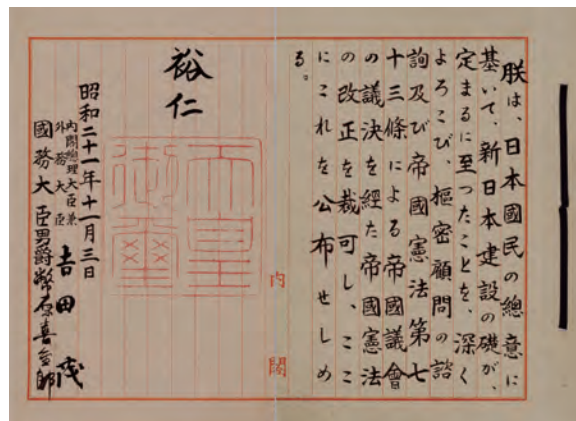 朕は、日本國民の總意に
基いて、新日本建設の礎が、
定まるに至つたことを、深く
よろこび、樞密顧問の諮
詢及び帝國憲法第七
十三條による帝國議會
の議決を経た帝國憲法
の改正を裁可し、ここ
にこれを公布せしめ
る。
裕仁
天皇
御璽
昭和二十一年十一月三日
內閣總理大臣兼
外務大臣 吉田茂
國務大臣男爵幣原喜重郎
內閣